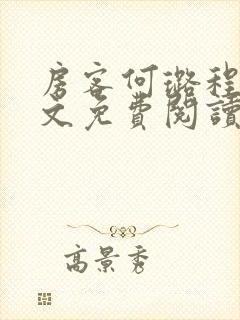 房客何璐程
文免費閱讀
高景秀